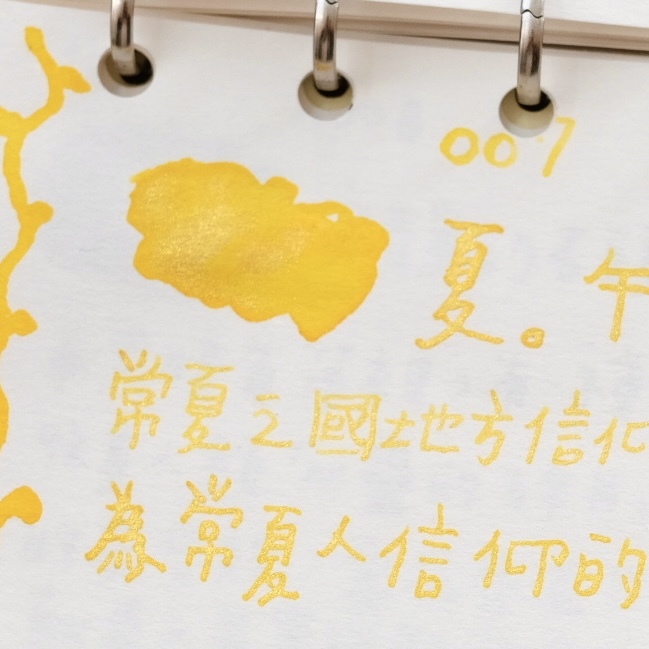 007
夏。午
常夏之國地方信仰
為常夏人信仰的